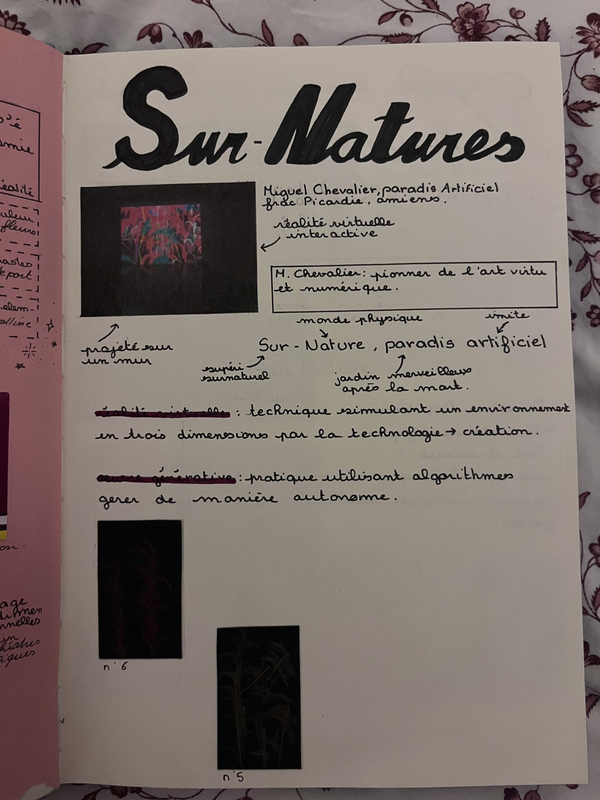 Sur-Natures
Miguel Chevalier, paradis Artificiel
frac Picardie, amiens.
réalité virtuelle
interactive
M. Chevalier: pionner de l'art virtu
et numérique.
projeté sur
un mur
monde physique
imite
Sur-Nature, paradis artificiel
supéri
surnaturel
jardin merveilleux
après la mort.
réalité virtuelle : technique simulant un environnement
en trois dimensions par la technologie → création.
œuvre générative : pratique utilisant algorithmes
gerer de manière autonome.
n°6
n°5
réalité